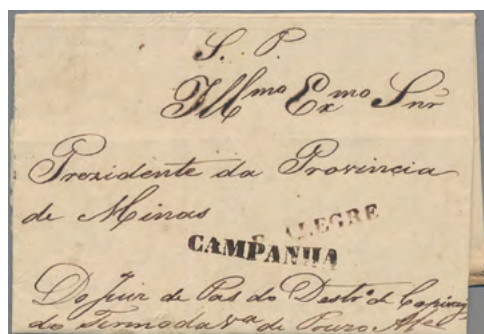 S. P.
Illmo Exmo Snr
Prezidente da Provincia
de Minas
P. ALEGRE
CAMPANHA
Do Juiz de Pas do Destro de Capivary
do Termo da Va de Pouzo Ale